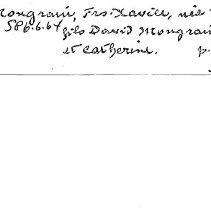 Mongrain, Frs-Xavier, née
586.6.64 fils David Mongrain
et Catherine. p.